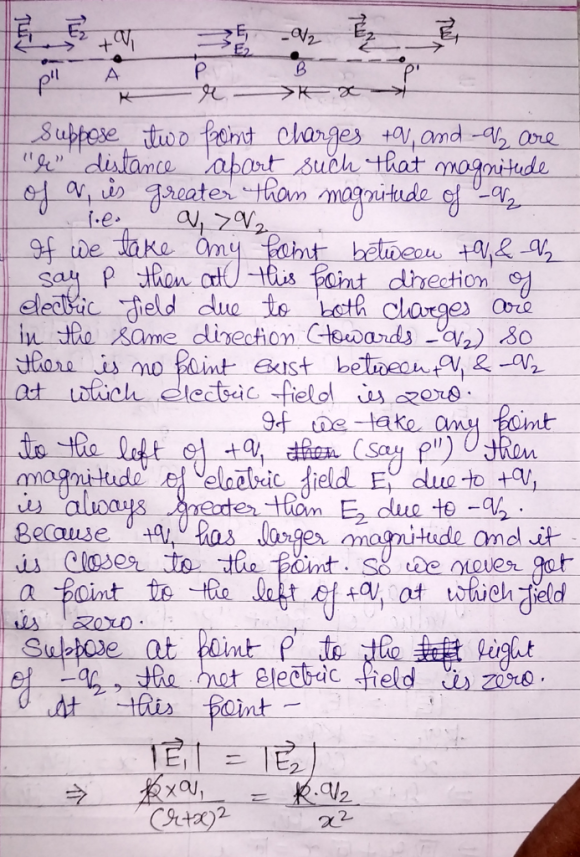 E₁ E₂ +q₁ E₁ E₂ -q₂ E₂ E₁
P" A P B P'
r x
Suppose two point charges +q₁ and -q₂ are
"r" distance apart such that magnitude
of q₁ is greater than magnitude of -q₂
i.e. q₁ > q₂
If we take any point between +q₁ & -q₂
say P then at this point direction of
electric field due to both charges are
in the same direction (towards -q₂) so
there is no point exist between +q₁ & -q₂
at which electric field is zero.
If we take any point
to the left of +q₁ then (say P") then
magnitude of electric field E₁ due to +q₁
is always greater than E₂ due to -q₂.
Because +q₁ has larger magnitude and it
is closer to the point. So we never got
a point to the left of +q₁ at which field
is zero.
Suppose at point P' to the left right
of -q₂, the net electric field is zero.
At this point -
|E₁| = |E₂|
⇒ k×q₁/(r+x)² = k.q₂/x²